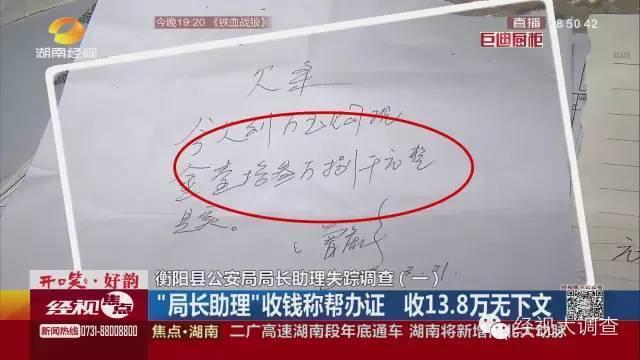 今晚19:20 《铁血战狼》
直播
08:50:42
湖南经视
巨迪厨柜
欠条
今欠到
现
金壹拾叁万捌千元整
是实。
开口笑·好韵
衡阳县公安局局长助理失踪调查(一)
经视焦点
"局长助理"收钱称帮办证 收13.8万无下文
新闻热线 0731-88008800
焦点·湖南
二广高速湖南段年底通车 湖南将新增
大动脉
经视大调查
元